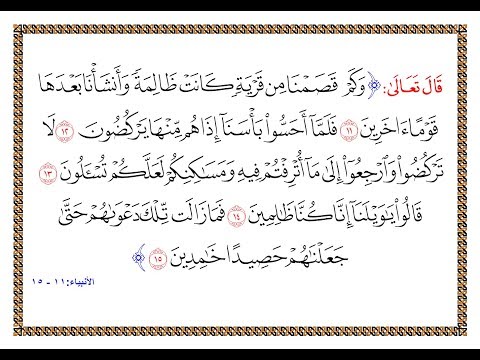 قَالَ تَعَالَى: ﴿وَكَمْ قَصَمْنَا مِن قَرْيَةٍ كَانَتْ ظَالِمَةً وَأَنشَأْنَا بَعْدَهَا
قَوْمًا ءَاخَرِينَ ١١ فَلَمَّآ أَحَسُّوا۟ بَأْسَنَآ إِذَا هُم مِّنْهَا يَرْكُضُونَ ١٢ لَا
تَرْكُضُوا۟ وَٱرْجِعُوٓا۟ إِلَىٰ مَآ أُتْرِفْتُمْ فِيهِ وَمَسَٰكِنِكُمْ لَعَلَّكُمْ تُسْـَٔلُونَ ١٣
قَالُوا۟ يَٰوَيْلَنَآ إِنَّا كُنَّا ظَٰلِمِينَ ١٤ فَمَا زَالَت تِّلْكَ دَعْوَىٰهُمْ حَتَّىٰ
جَعَلْنَٰهُمْ حَصِيدًا خَٰمِدِينَ ١٥﴾
الأنبياء: ١١ - ١٥